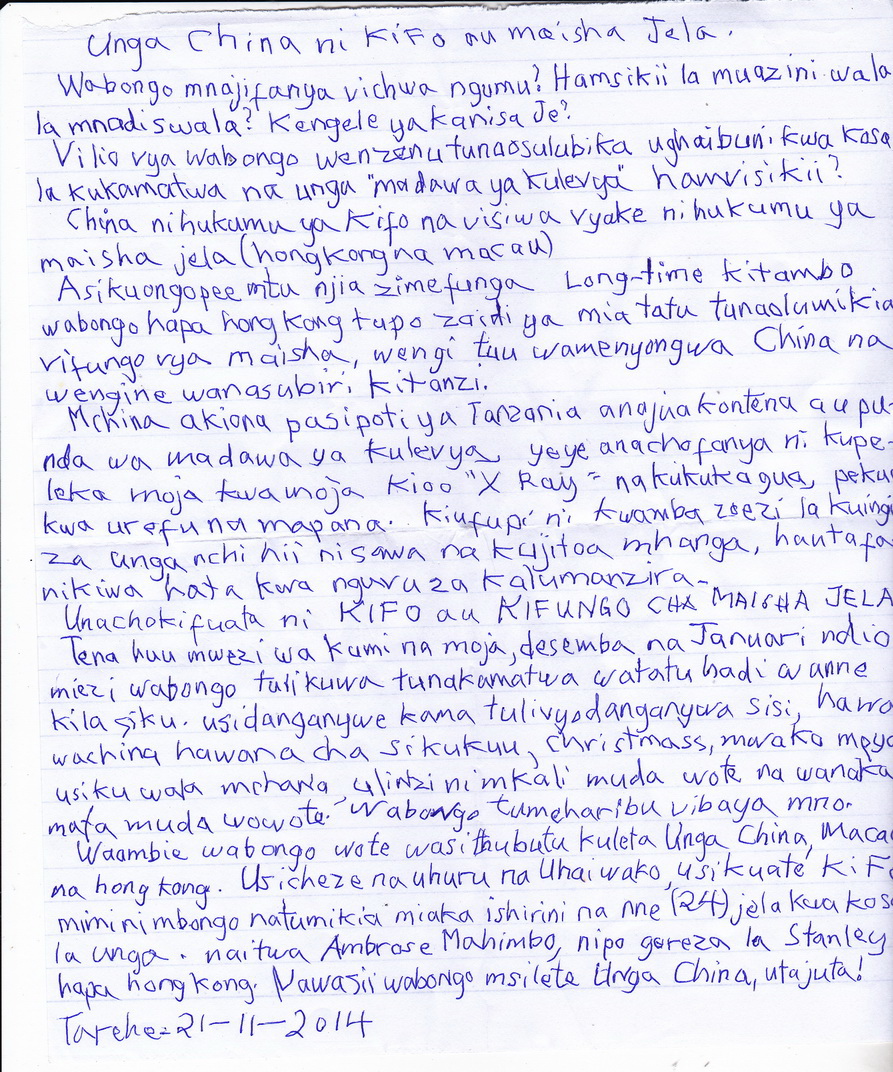 Unga China ni Kifo au maisha Jela.
Wabongo mnajifanya vichwa ngumu? Hamsikii la muazini wala
la mnadi swala? Kengele ya kanisa Je?
Vilio vya wabongo wenzenu tunaosulubika ughaibuni kwa kosa
la kukamatwa na unga "madawa ya Kulevya" hamvisikii?
China ni hukumu ya Kifo na visiwa vyake ni hukumu ya
maisha jela (hongkong na macau)
Asikuongopee mtu njia zimefunga Long-time kitambo
wabongo hapa hong Kong tupo zaidi ya mia tatu tunaotumikia
vifungo vya maisha, wengi tuu wamenyongwa China na
wengine wanasubiri kitanzi.
Mchina akiona pasipoti ya Tanzania anajua kontena au pu-
nda wa madawa ya kulevya, yeye anachofanya ni kupe-
leka moja kwa moja Kioo "X Ray" na kukukagua, peku
kwa urefu na mapana. Kiufupi ni kwamba zoezi la kuingi
za unga nchi hii ni sawa na kujitoa mhanga, hautafa
nikiwa hata kwa nguvu za kalumanzira-
Unachokifuata ni KIFO au KIFUNGO CHA MAISHA JELA
Tena huu mwezi wa kumi na moja, desemba na Januari ndio
miezi wabongo tulikuwa tunakamatwa watatu hadi wanne
kila siku. usidanganywe kama tulivyodanganywa sisi, hawa
wachina hawana cha sikukuu, christmass, mwako mpya
usiku wala mchana ulinzi ni mkali muda wote na wanaka
mata muda wowote. Wabongo tumeharibu vibaya mno.
Waambie wabongo wote wasithubutu kuleta Unga China, Macau
na hong kong. Usicheze na uhuru na Uhai wako, usikuate KiFo
mimi ni mbongo natumikia miaka ishirini na nne (24) jela kwa kosa
la unga. naitwa Ambrose Mahimbo, nipo gereza la Stanley
hapa hong Kong. Nawasii wabongo msilete Unga China, utajuta!
Tarehe=21-11-2014